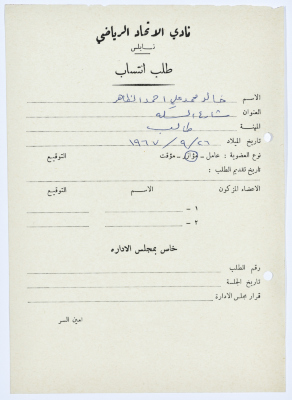 نادي الاتحاد الرياضي
نابلس
طلب انتساب
الاسم خالد محمد علي احمد الظاهر
العنوان شارع السكه
المهنة طالب
تاريخ الميلاد ٢٦ / ٩ / ١٩٦٧
نوع العضوية : عامل - مؤازر - مؤقت التوقيع
تاريخ تقديم الطلب :
الاعضاء المزكون الاسم التوقيع
١ -
٢ -
خاص بمجلس الاداره
رقم الطلب
تاريخ الجلسة
قرار مجلس الادارة
امين السر